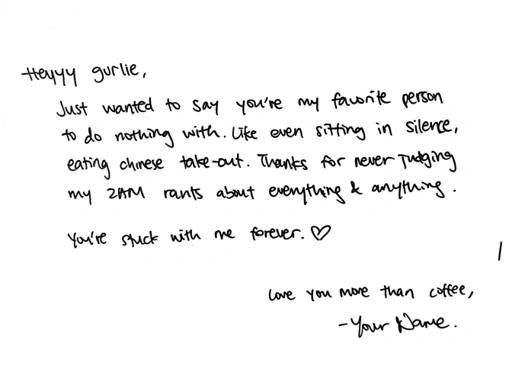 Heyyy gurlie,
Just wanted to say you're my favorite person
to do nothing with. Like even sitting in silence,
eating chinese take-out. Thanks for never judging
my 2AM rants about everything & anything.
You're stuck with me forever. ♡
Love you more than coffee,
-Your Name.